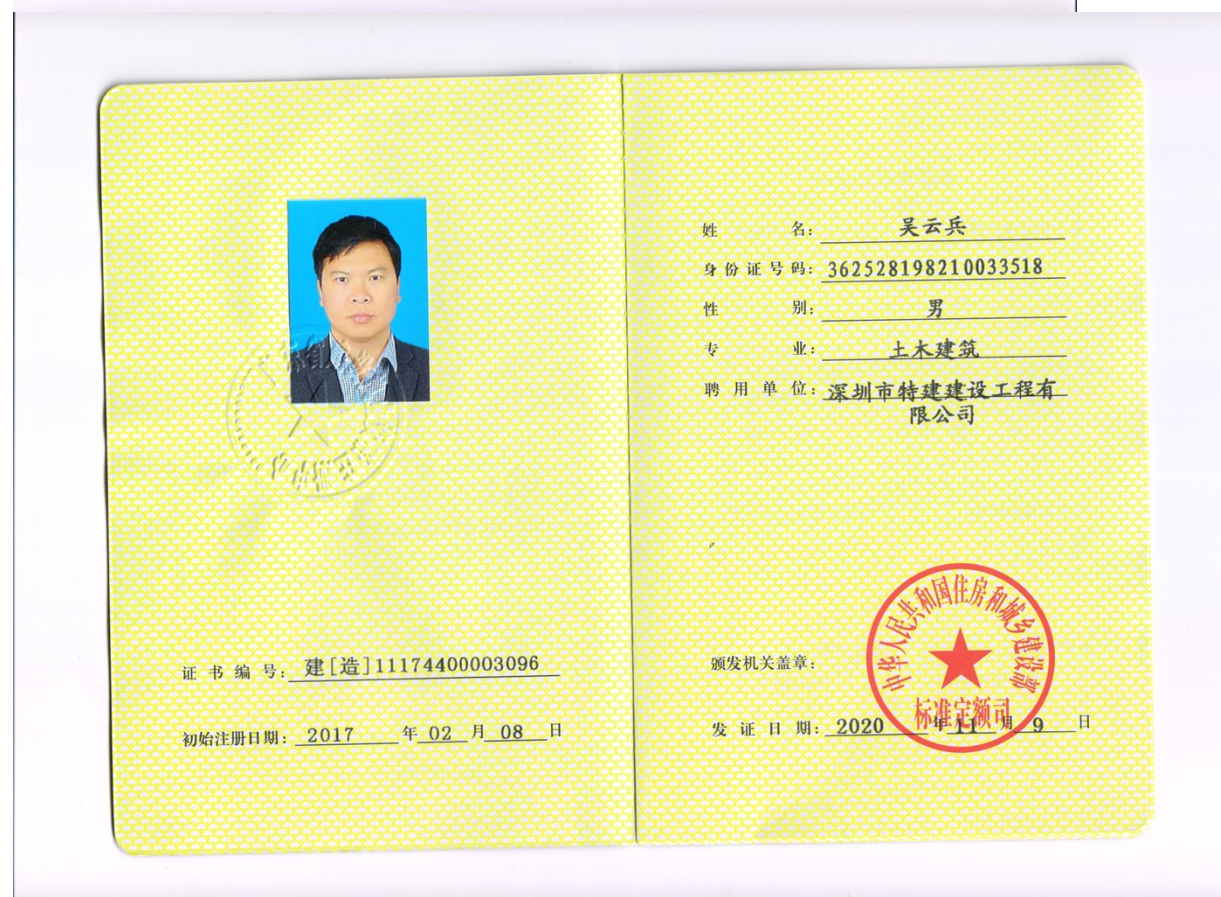 证书编号：建[造]11174400003096
初始注册日期：2017年02月08日
姓名：吴云兵
身份证号码：362528198210033518
性别：男
专业：土木建筑
聘用单位：深圳市特建建设工程有
限公司
颁发机关盖章：
中华人民共和国住房和城乡建设部
标准定额司
发证日期：2020年11月9日